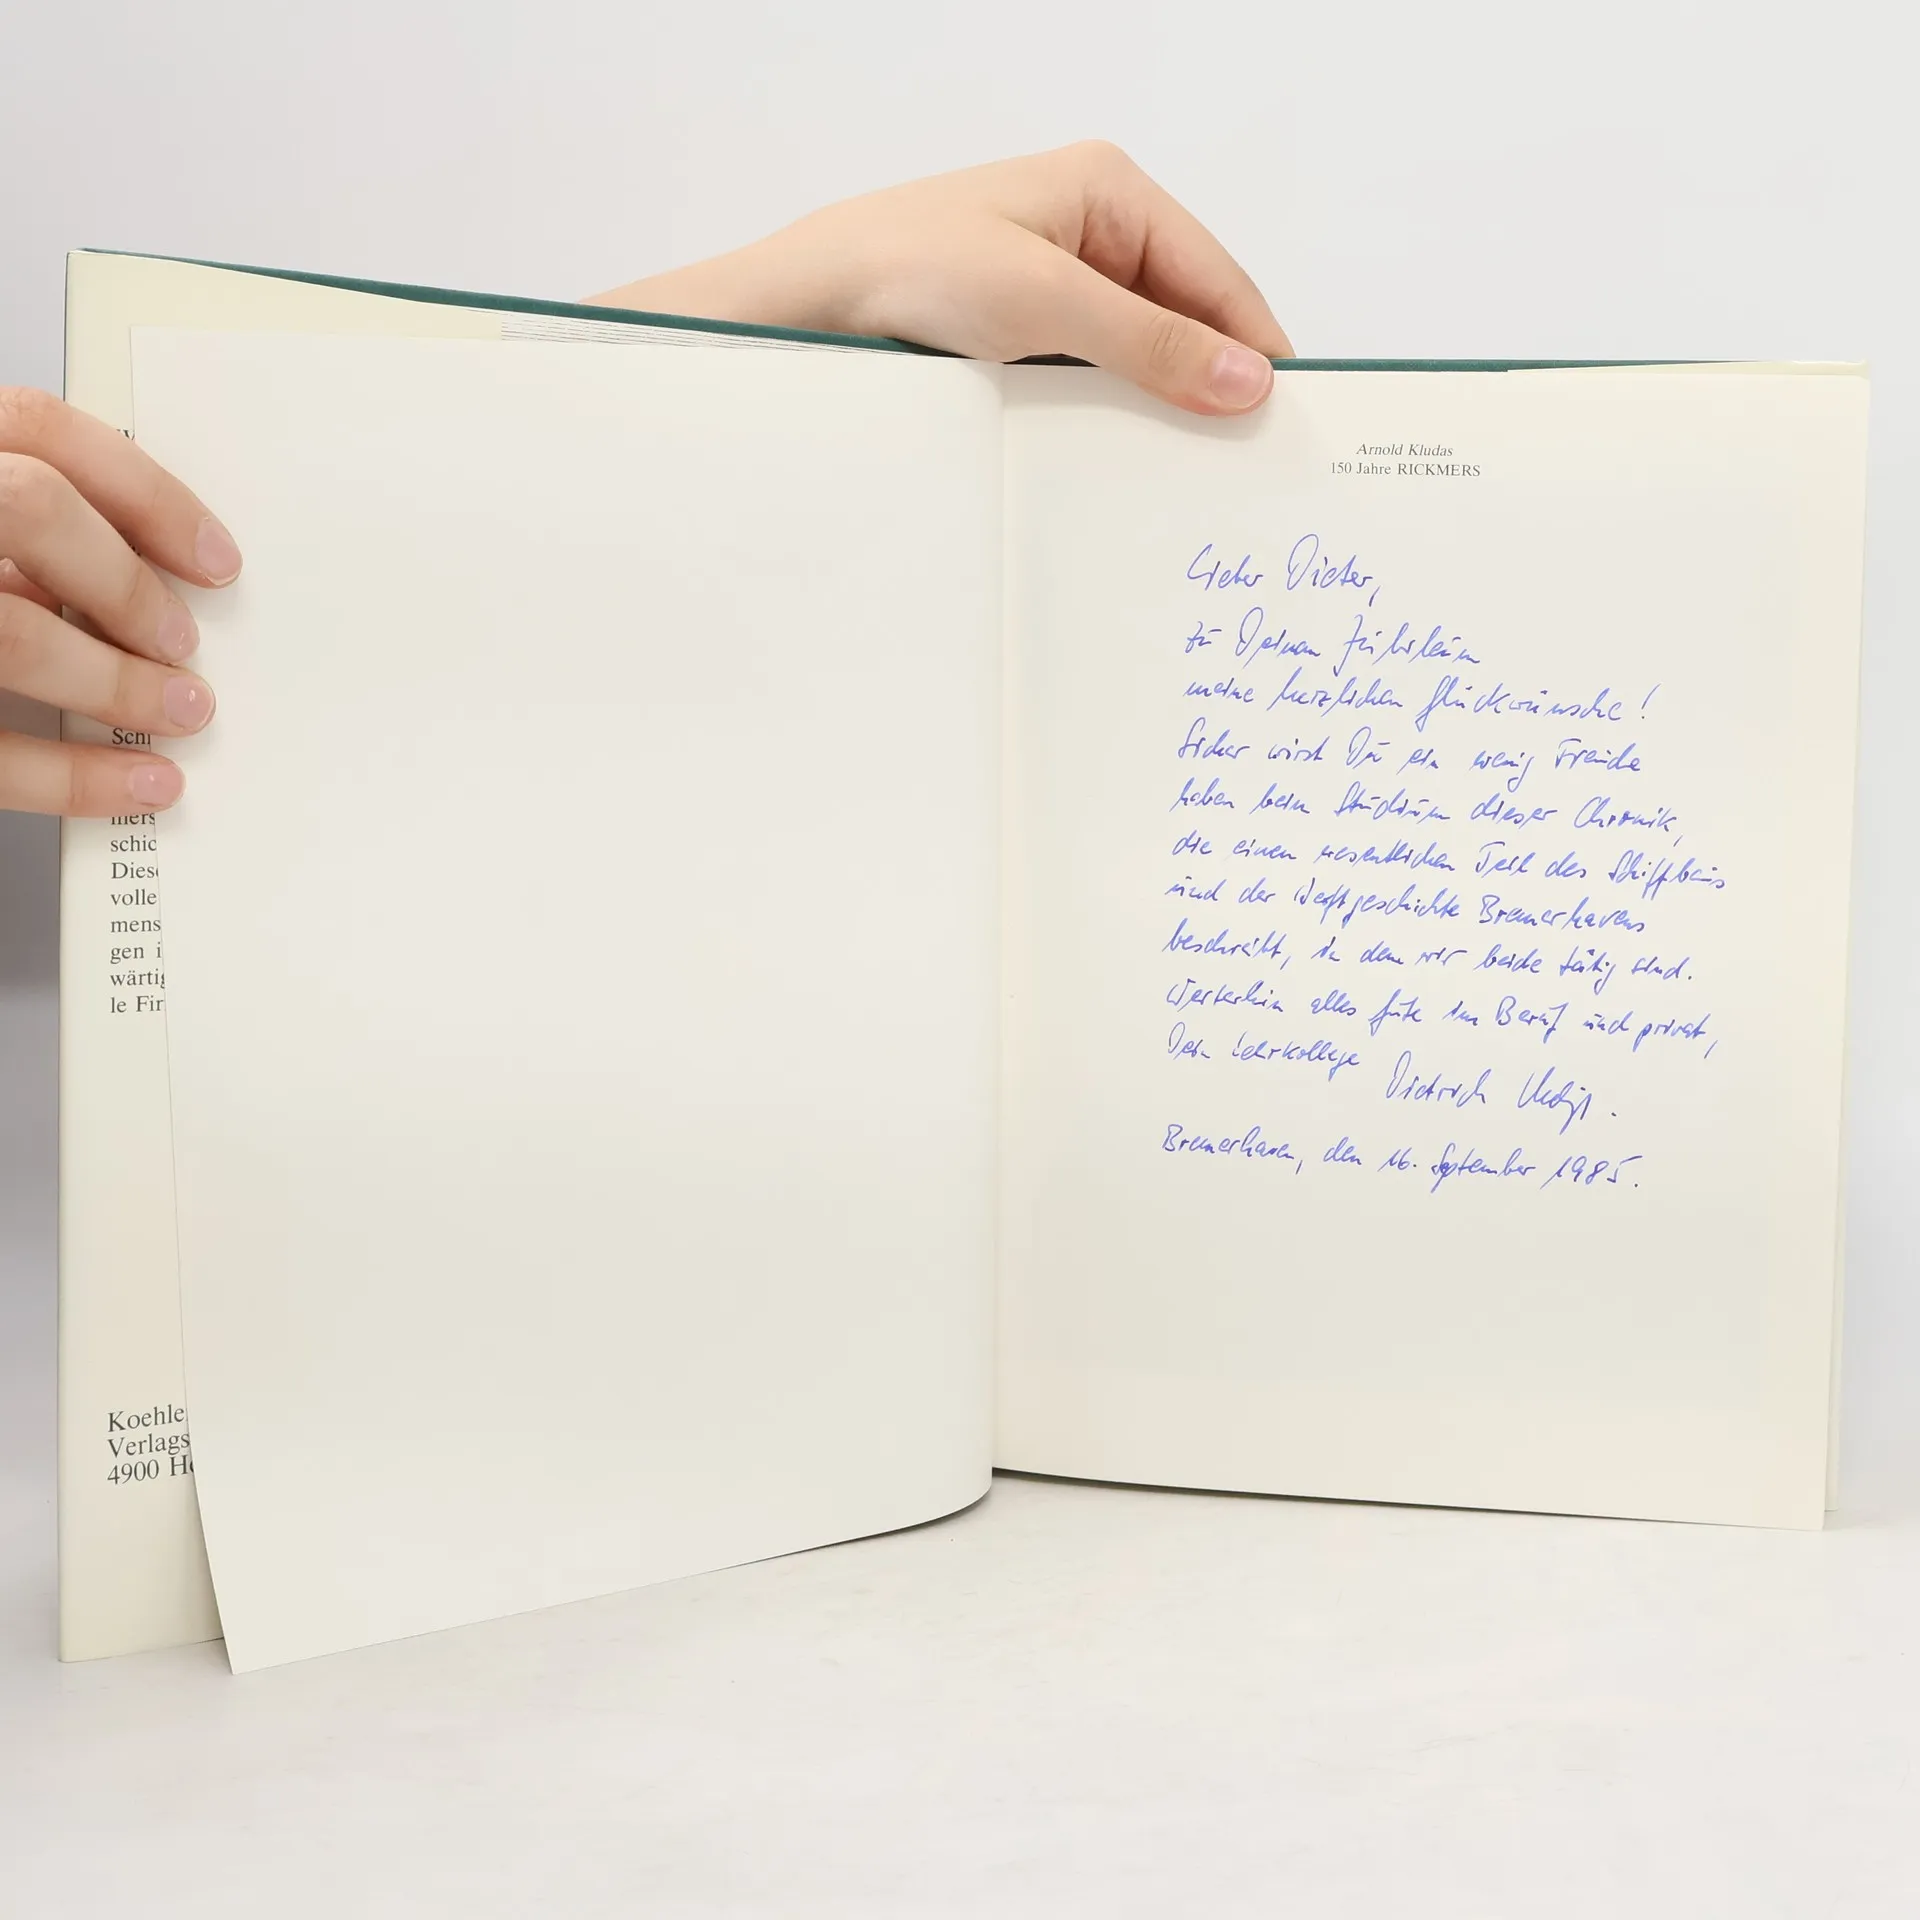 Schi
mers
schic
Dies
volle
mens
gen i
wärtig
le Fir
Koehle
Verlags
4900 He
Arnold Kludas
150 Jahre RICKMERS
Lieber Dieter,
zu Deinem Jubiläum
meine herzlichen Glückwünsche!
Sicher wirst Du ein wenig Freude
haben beim Studium dieser Chronik,
die einen wesentlichen Teil des Schiffbaus
und der Werftgeschichte Bremerhavens
beschreibt, in dem wir beide tätig sind.
Weiterhin alles Gute im Beruf und privat,
Dein Lehrkollege
Dietrich
Bremerhaven, den 16. September 1985.